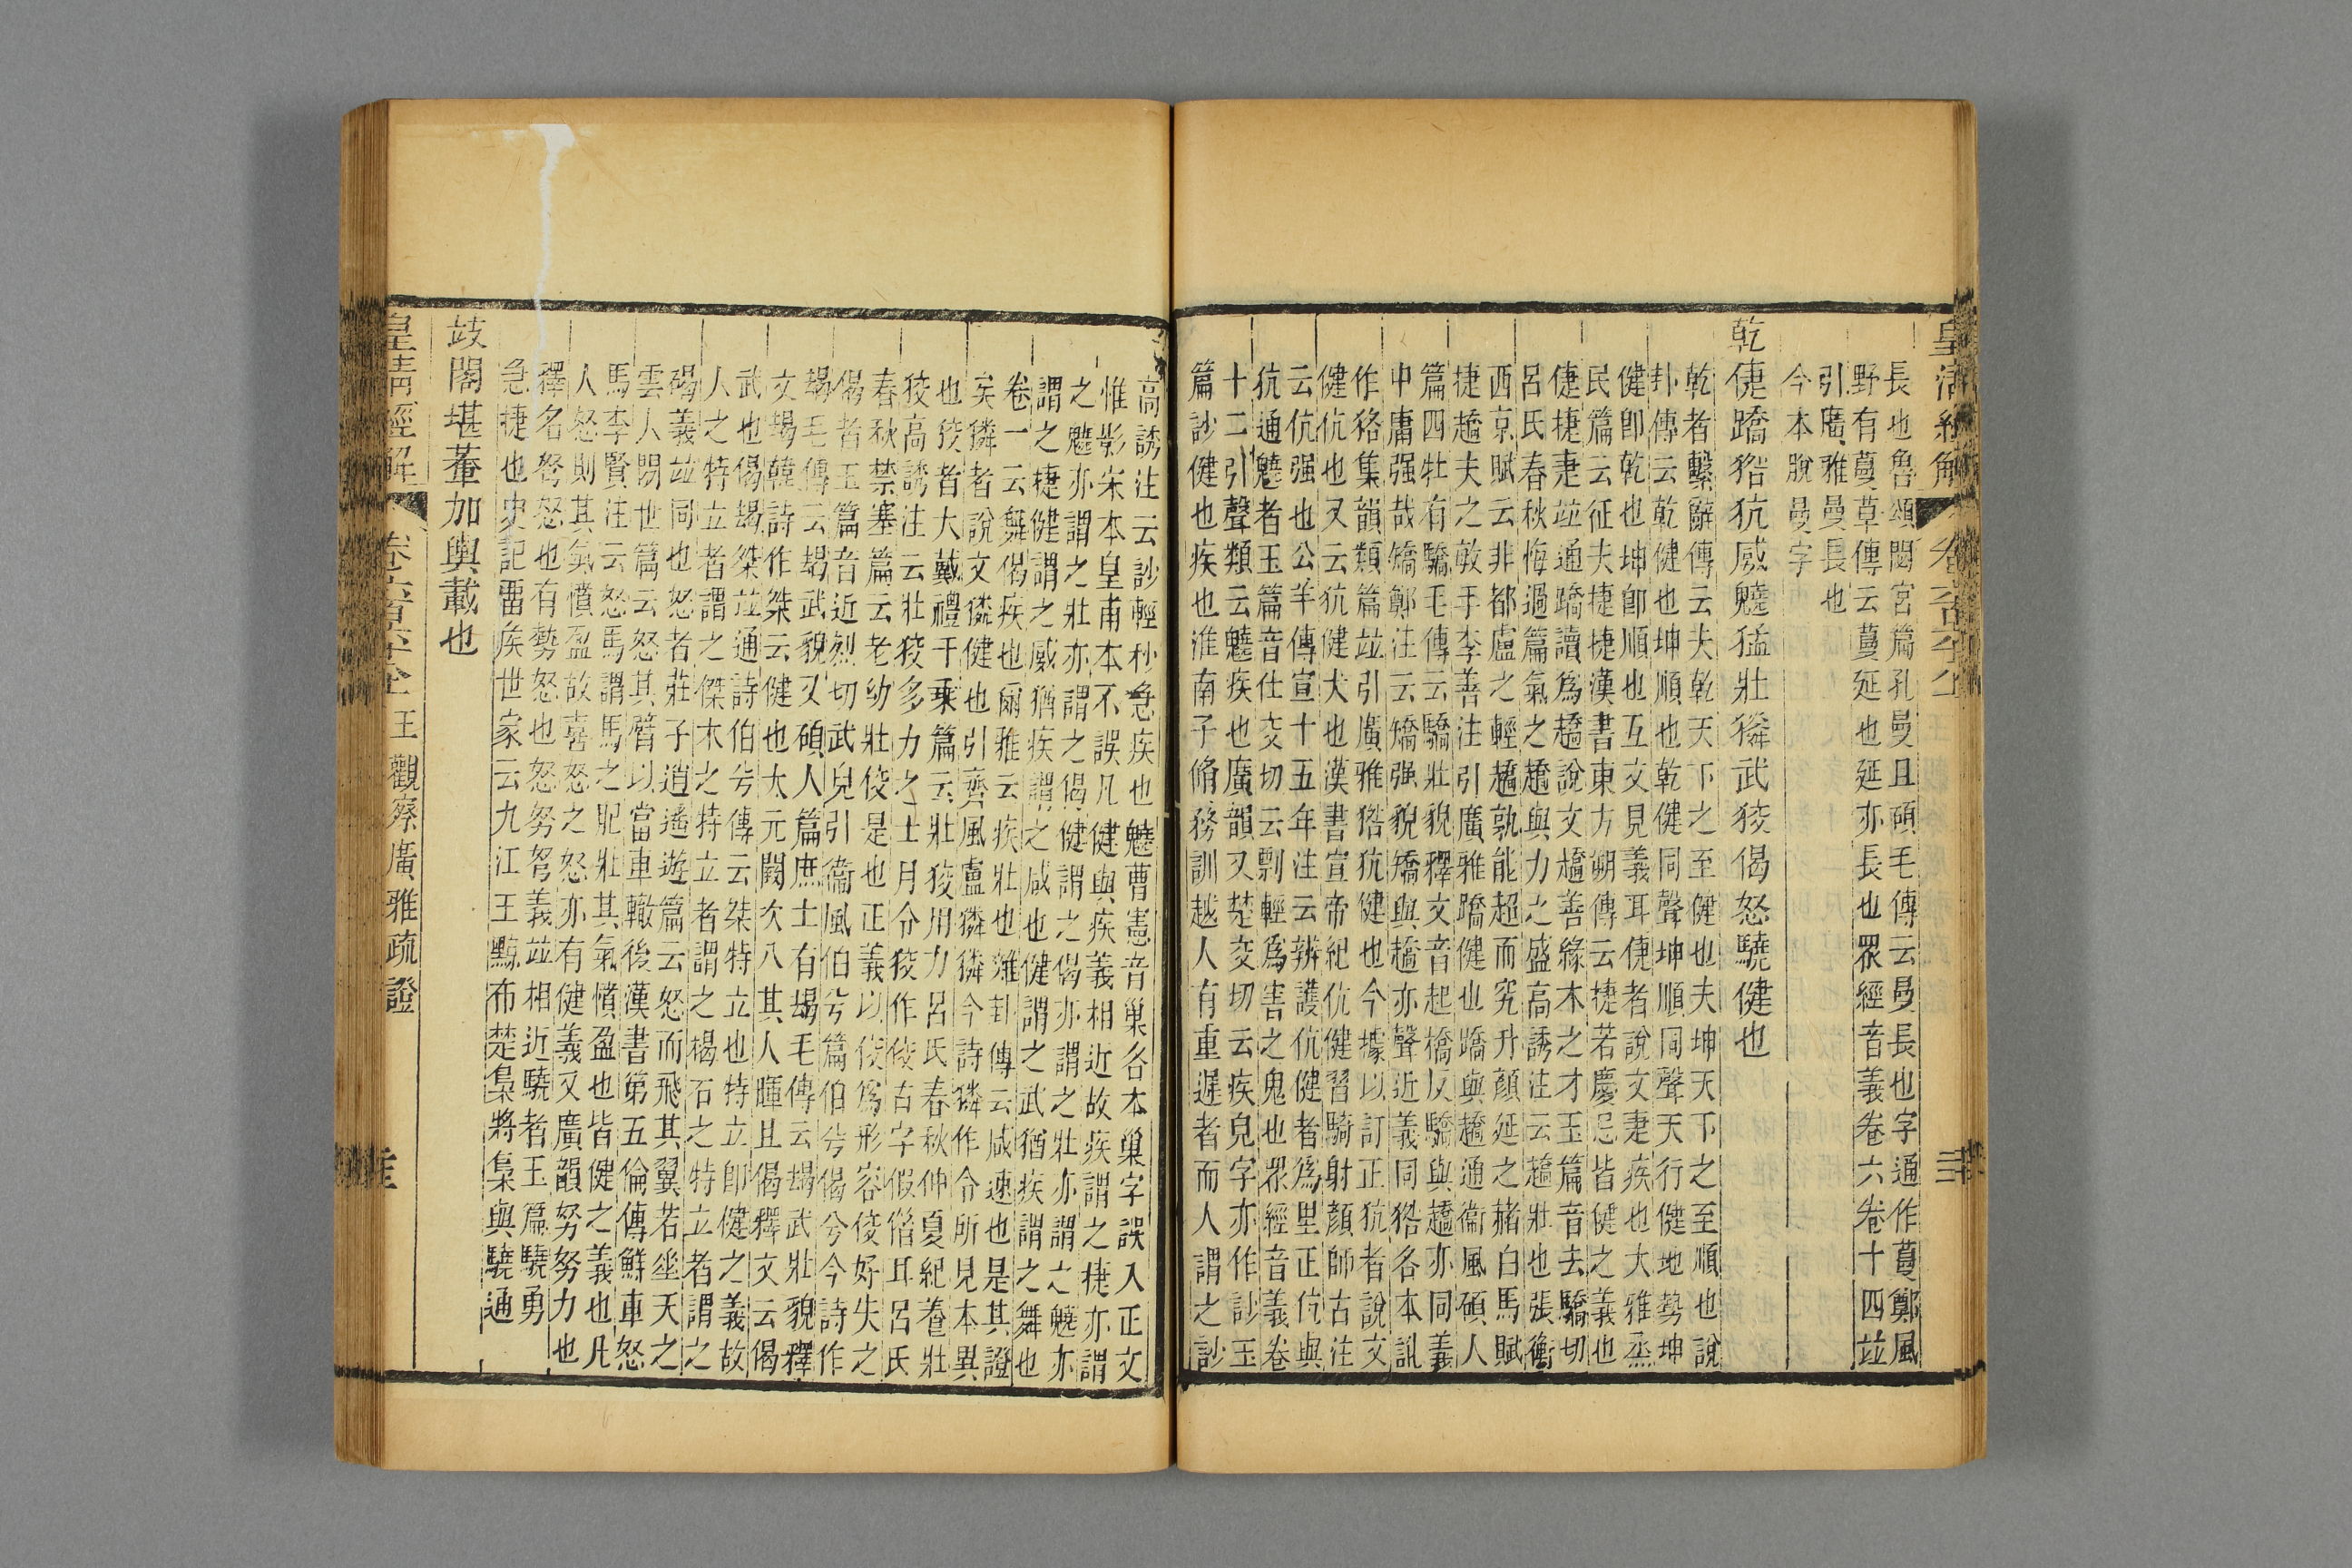 皇清經解
長也魯頌閟宮篇孔曼且碩毛傳云曼長也字通作蔓鄭風
野有蔓草傳云蔓延也延亦長也眾經音義卷六卷十四竝
引廣雅曼長也
今本脫曼字
乾倢蹻㹱犺威䰫猛壯獜武狡偈怒驍健也
乾者繫辭傳云夫乾天下之至健也夫坤天下之至順也說
卦傳云乾健也坤順也乾健同聲坤順同聲天行健地勢坤
健卽乾也坤卽順也互文見義耳倢者說文疌疾也大雅烝
民篇云征夫捷捷漢書東方朔傳云捷若慶忌皆健之義也
倢捷疌竝通蹻讀爲趫說文趫善緣木之才玉篇音去驕切
呂氏春秋悔過篇氣之趫與力之盛高誘注云趫壯也張衡
西京賦云非都盧之輕趫孰能超而究升顏延之赭白馬賦
捷趫夫之敏手李善注引廣雅蹻健也蹻與趫通衞風碩人
篇四牡有驕毛傳云驕壯貌釋文音起橋反驕與趫亦同義
中庸强哉矯鄭注云矯强貌矯與趫亦聲近義同㹱各本訛
作狢集韻類篇竝引廣雅㹱犺健也今據以訂正犺者說文
健犺也又云犺健犬也漢書宣帝紀伉健習騎射顏師古注
云伉强也公羊傳宣十五年注云辨護伉健者爲里正伉與
犺通䰫者玉篇音仕交切云剽輕爲害之鬼也眾經音義卷
十二引聲類云䰫疾也廣韻又楚交切云疾皃字亦作訬玉
篇訬健也疾也淮南子脩務訓越人有重遲者而人謂之訬
高誘注云訬輕利急疾也䰫曹憲音巢各本巢字誤入正文
惟影宋本皇甫本不誤凡健與疾義相近故疾謂之捷亦謂
之䰫亦謂之壯亦謂之偈健謂之偈亦謂之壯亦謂之䰫亦
謂之捷健謂之威猶疾謂之咸也健謂之武猶疾謂之舞也
卷一云舞偈疾也爾雅云疾壯也雜卦傳云咸速也是其證
矣獜者說文獜健也引齊風盧獜獜今詩獜作令所見本異
也狡者大戴禮千乘篇云壯狡用力呂氏春秋仲夏紀養壯
狡高誘注云壯狡多力之士月令狡作佼古字假偕耳呂氏
春秋禁塞篇云老幼壯佼是也正義以佼爲形容佼好失之
偈者玉篇音近烈切武皃引衞風伯兮篇伯兮偈兮今詩作
朅毛傳云朅武貌又碩人篇庶士有朅毛傳云朅武壯貌釋
文朅韓詩作桀云健也太元闞次八其人暉且偈釋文云偈
武也偈朅桀竝通詩伯兮傳云桀特立也特立卽健之義故
人之特立者謂之傑木之特立者謂之楬石之特立者謂之
碣義竝同也怒者莊子逍遙遊篇云怒而飛其翼若垂天之
雲人閒世篇云怒其臂以當車轍後漢書第五倫傳鮮車怒
馬李賢注云怒馬謂馬之肥壯其氣憤盈也皆健之義也凡
人怒則其氣憤盈故喜怒之怒亦有健義又廣韻努努力也
釋名弩怒也有勢怒也怒努弩義竝相近驍者玉篇驍勇
急捷也史記畱矦世家云九江王黥布楚梟將梟與驍通
攱閣堪𦽏加輿載也
皇清經解 王觀察廣雅疏證